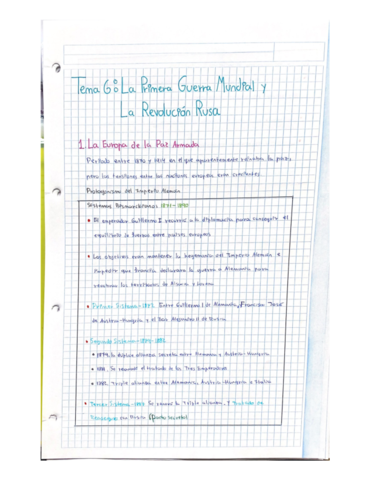 Tema 6: La Primera Guerra Mundial y
La Revolución Rusa
1. La Europa de la Paz Armada
Período entre 1870 y 1914 en el que aparentemente reinaba la paz,
pero las tensiones entre las naciones europeas eran constantes.
Protagonismo del Imperio Alemán
Sistemas Bismarckianos: 1871-1890
• El emperador Guillermo I recurrió a la diplomacia para conseguir el
equilibrio de fuerzas entre países europeos
• Los objetivos eran mantener la hegemonía del Imperio Alemán e
impedir que Francia declarara la guerra a Alemania para
recuperar los territorios de Alsacia y Lorena
• Primer Sistema-1872. Entre Guillermo I de Alemania, Francisco José
de Austria-Hungría y el Zar Alejandro II de Rusia
• Segundo Sistema-1879-1882
• 1879, la dúplice alianza secreta entre Alemania y Austria-Hungría.
• 1881. Se renovó el tratado de los Tres Emperadores
• 1882. Triple alianza entre Alemania, Austria-Hungría e Italia
• Tercer Sistema-1887 Se renovó la Triple alianza, y Tratado de
Reaseguro con Rusia (Pacto secreto)